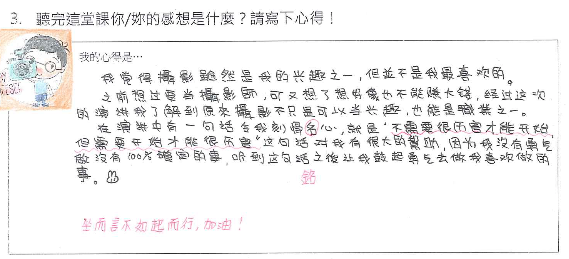 3. 聽完這堂課你/妳的感想是什麼?請寫下心得!
我的心得是…
我覺得攝影雖然是我的兴趣之一,但並不是我最喜欢的。
之前想过要当攝影師,可又想了想好像也不能賺大錢,经过这次
的演講我了解到原來攝影不只是可以当兴趣,也能是職業之一。
在演講中有一句話令我刻得名心,就是"不需要很历害才能开始
但需要开始才能很历害"这句話对我有很大的幫助,因为我沒有勇气
做沒有100%確定的事,听到这句話之後让我鼓起勇气去做我喜欢做的
事。
銘
坐而言不如起而行,加油!